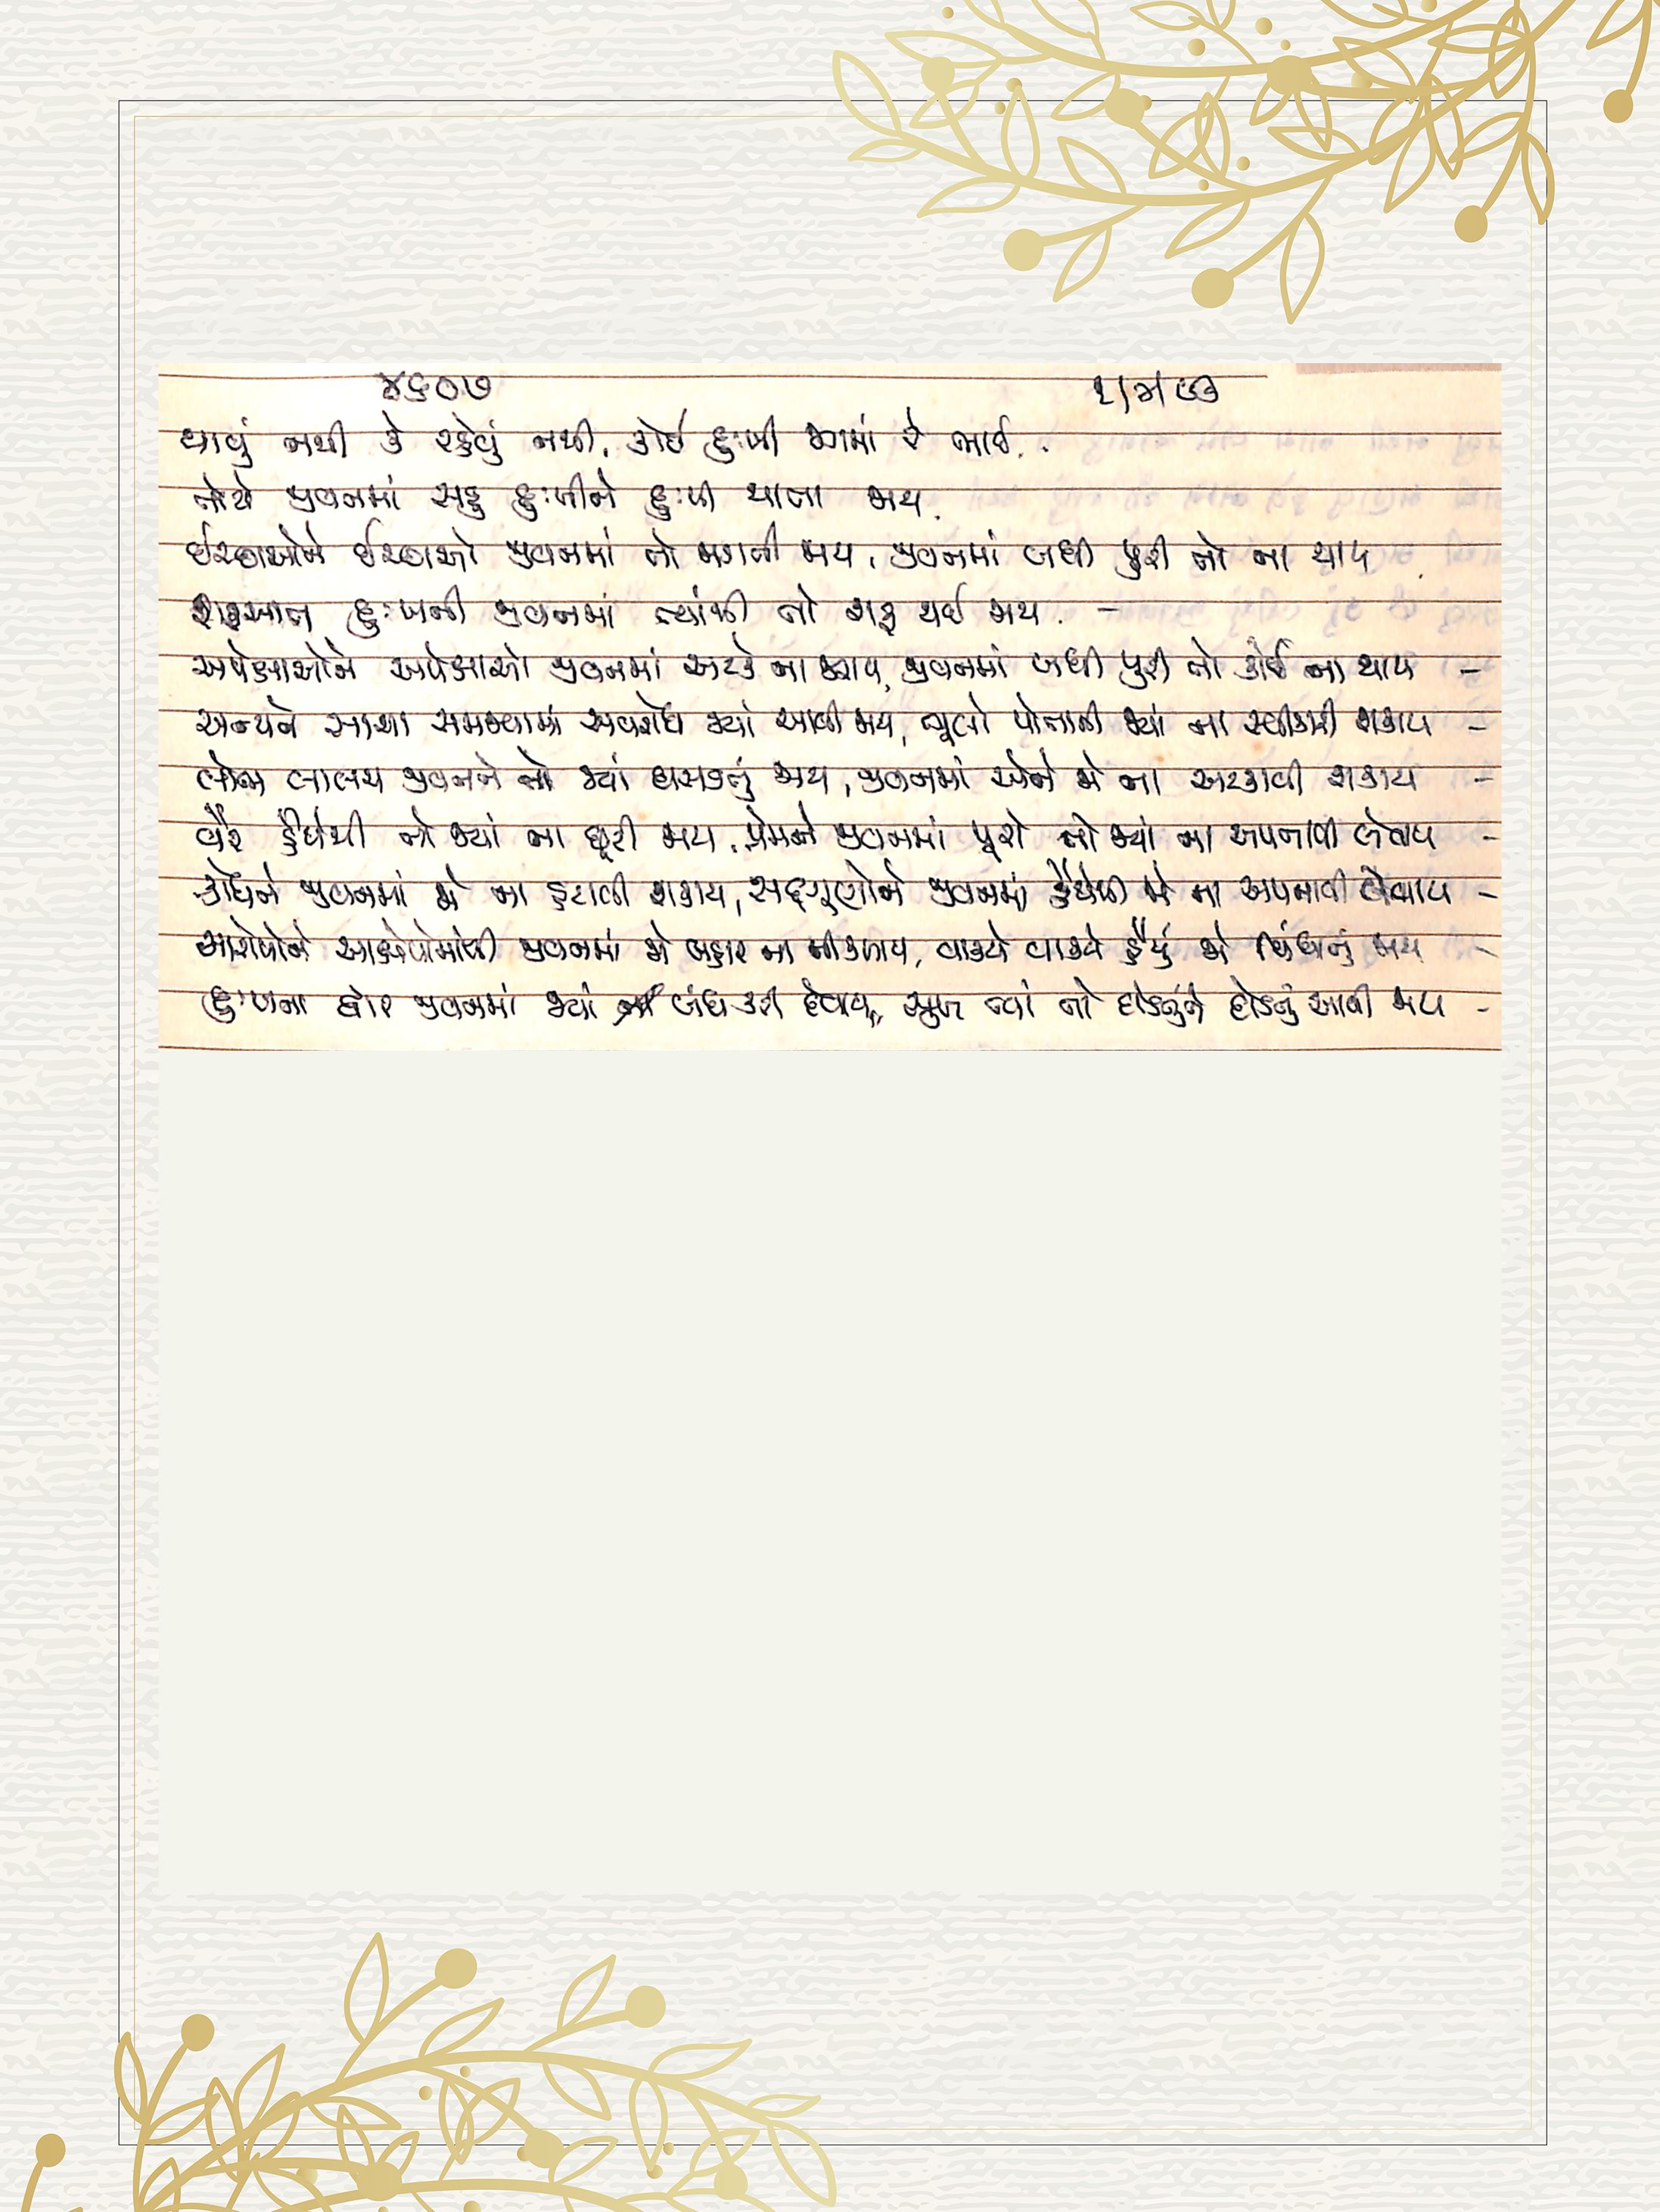 ૪૬૦૭ ૧/૩/૯૩
થાવું નથી કે રહેવું નથી, કોઈ દુઃખી જગમાં રે ભાઈ..
તોયે જીવનમાં સહુ દુઃખીને દુઃખી થાતા જાય.
ઈચ્છાઓને ઈચ્છાઓ જીવનમાં તો જાગતી જાય, જીવનમાં બધી પુરી તો ના થાય
શરૂઆત દુઃખની જીવનમાં ત્યાંથી તો શરૂ થઈ જાય. –
અપેક્ષાઓને અપેક્ષાઓ જીવનમાં અટકે ના જરાય, જીવનમાં બધી પુરી તો કોઈ ના થાય –
અન્યને સાચા સમજવામાં અવરોધ જ્યાં આવી જાય, ભૂલો પોતાની જ્યાં ના સ્વીકારી શકાય –
લોભ લાલચ જીવનને તો જ્યાં ઘસડતું જાય, જીવનમાં એને જો ના અટકાવી શકાય –
વૈર હૈયેથી તો જ્યાં ના છૂટી જાય, પ્રેમને જીવનમાં પૂરો તો જ્યાં ના અપનાવી લેવાય –
ક્રોધને જીવનમાં જો ના હટાવી શકાય, સદ્ગુણોને જીવનમાં હૈયેથી જો ના અપનાવી લેવાય –
આરોપોને આક્ષેપોમાંથી જીવનમાં જો બહાર ના નીકળાય, વાક્યે વાક્યે હૈયું જો વિંધાતું જાય –
દુઃખના દ્વાર જીવનમાં જ્યાં બંધ કરી દેવાય, સુખ ત્યાં તો દોડતુંને દોડતું આવી જાય –